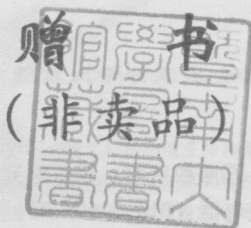 赠书
(非卖品)
暨南大
學圖書
館藏書